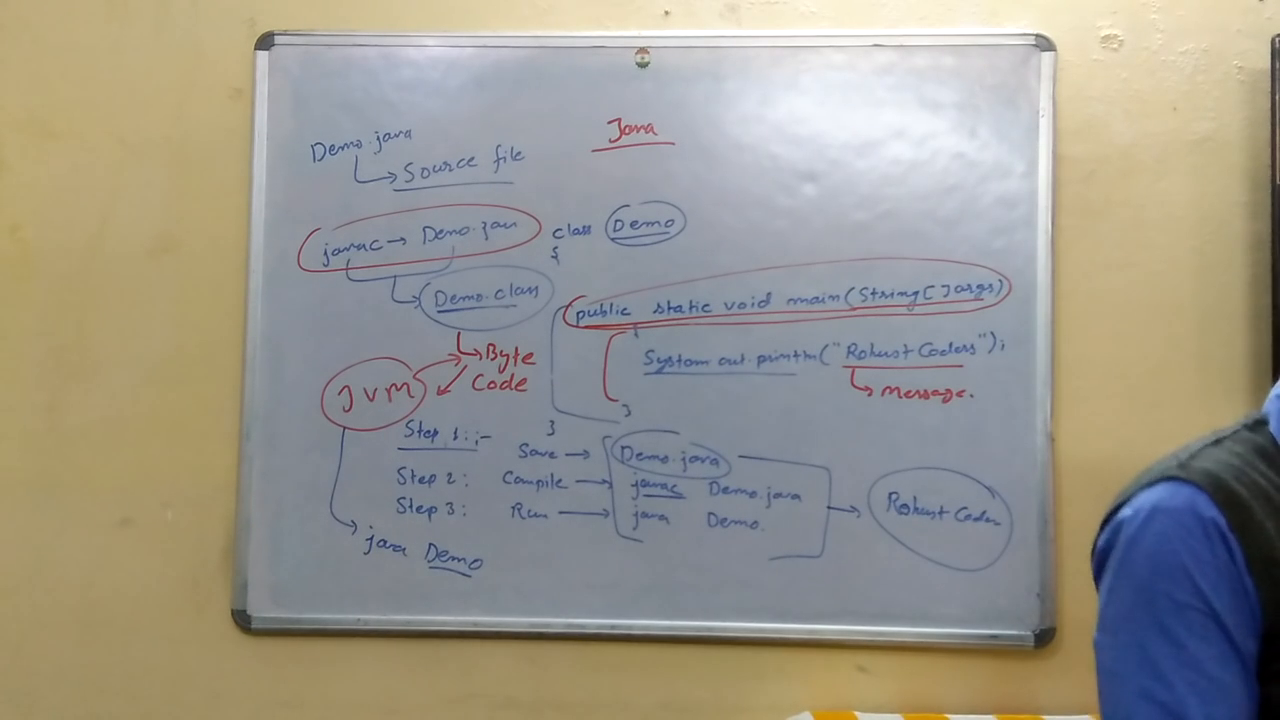 Java
Demo.java
Source file
javac → Demo.java
Demo.class
Byte
Code
JVM
java Demo
class Demo
{
public static void main(String[]args)
{
System.out.println("Robust Coders");
message.
}
}
Step 1:- Save → Demo.java
Step 2: Compile → javac Demo.java
Step 3: Run → java Demo.
Robust Coders